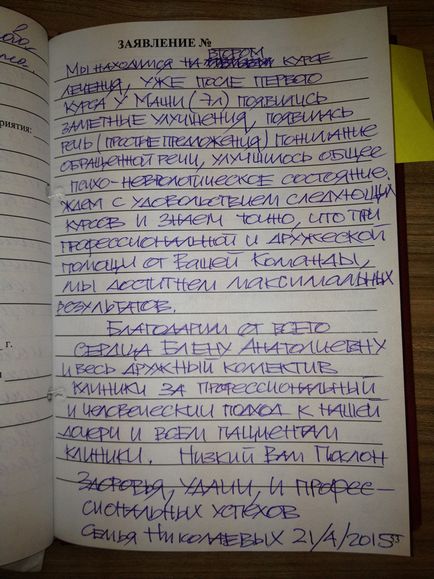 ово
риятия:
г.
ЗАЯВЛЕНИЕ №
ВТОРОМ
МЫ НАХОДИМСЯ НА КУРСЕ
ЛЕЧЕНИЯ, УЖЕ ПОСЛЕ ПЕРВОГО
КУРСА У МАШИ (7Л) ПОЯВИЛИСЬ
ЗАМЕТНЫЕ УЛУЧШЕНИЯ, ПОЯВИЛАСЬ
РЕЧЬ (ПРОСТЫЕ ПРЕДЛОЖЕНИЯ) ПОНИМАНИЕ
ОБРАЩЕННОЙ РЕЧИ, УЛУЧШИЛОСЬ ОБЩЕЕ
ПСИХО-НЕВРОЛОГИЧЕСКОЕ СОСТОЯНИЕ.
ЖДЕМ С УДОВОЛЬСТВИЕМ СЛЕДУЮЩИХ
КУРСОВ И ЗНАЕМ ТОЧНО, ЧТО ПРИ
ПРОФЕССИОНАЛЬНОЙ И ДРУЖЕСКОЙ
ПОМОЩИ ОТ ВАШЕЙ КОМАНДЫ,
МЫ ДОСТИГНЕМ МАКСИМАЛЬНЫХ
РЕЗУЛЬТАТОВ.
БЛАГОДАРИМ ОТ ВСЕГО
СЕРДЦА ЕЛЕНУ АНАТОЛИЕВНУ
И ВЕСЬ ДРУЖНЫЙ КОЛЕКТИВ
КЛИНИКИ ЗА ПРОФЕССИОНАЛЬНЫЙ
И ЧЕЛОВЕЧЕСКИЙ ПОДХОД К НАШЕЙ
ДОЧЕРИ И ВСЕМ ПАЦИЕНТАМ
КЛИНИКИ. НИЗКИЙ ВАМ ПОКЛОН
ЗДОРОВЬЯ, УДАЧИ, И ПРОФЕС-
СИОНАЛЬНЫХ УСПЕХОВ
СЕМЬЯ НИКОЛАЕВЫХ 21/4/2015